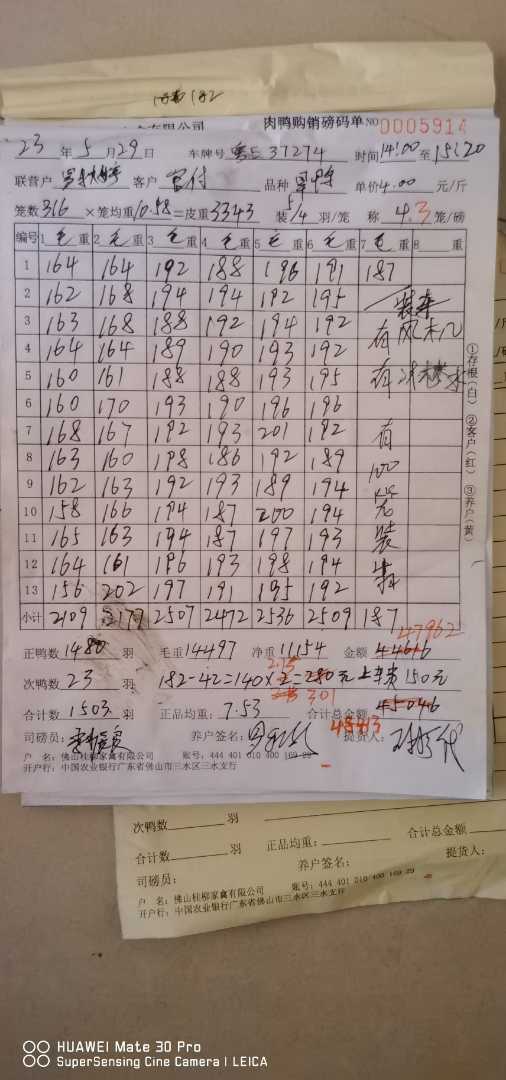 182
有限公司 肉鸭购销磅码单 NO 0005914
23 年 5 月 29 日 车牌号 粤E 37274 时间 14:00 至 15:20
联营户 客户 官付 品种 单价 4.00 元/斤
笼数 316 ×笼均重 10.58 =皮重 3343 装 5/4 羽/笼 称 4.3 笼/磅
编号 1 毛 重 2 毛 重 3 毛 重 4 毛 重 5 毛 重 6 毛 重 7 毛 重 8 重
1 164 164 192 188 196 191 187
2 162 168 194 194 192 195
3 163 168 188 192 194 192 有风
4 164 164 189 190 193 192
5 160 161 188 188 193 195 有冰
6 160 170 193 190 196 196
7 168 167 192 193 201 192 有
8 163 160 198 186 192 189 100
9 162 163 192 193 189 194
10 158 166 194 187 200 194
11 165 163 194 187 197 193 装
12 164 161 196 193 198 194
13 156 202 197 191 195 192
小计 2109 2177 2507 2472 2536 2509 187
47962
正鸭数 1480 羽 毛重 14497 净重 11154 金额 44616
次鸭数 23 羽 182-42=140×2=280元 上车费 150元
2.15
301
合计数 1503 羽 正品均重: 7.53 合计总金额 45046
48413
司磅员: 养户签名: 提货人:
户 名: 佛山桂柳家禽有限公司 账号: 444 401 010 400 169 29
开户行: 中国农业银行广东省佛山市三水区三水支行
①存根(白) ②客户(红) ③养户(黄)
次鸭数 羽
合计数 羽 正品均重: 合计总金额
司磅员: 养户签名: 提货人:
户 名: 佛山桂柳家禽有限公司 账号: 444 401 010 400 169 29
开户行: 中国农业银行广东省佛山市三水区三水支行
HUAWEI Mate 30 Pro
SuperSensing Cine Camera | LEICA